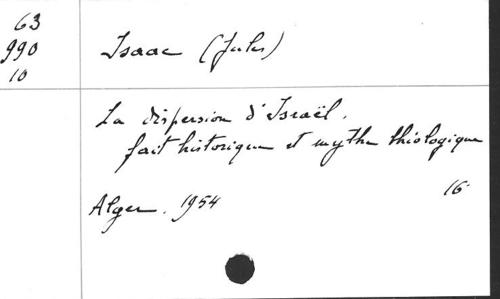 63
990
10
Isaac (Jules)
La dispersion d'Israël.
fait historique et mythe théologique
Alger. 1954
16